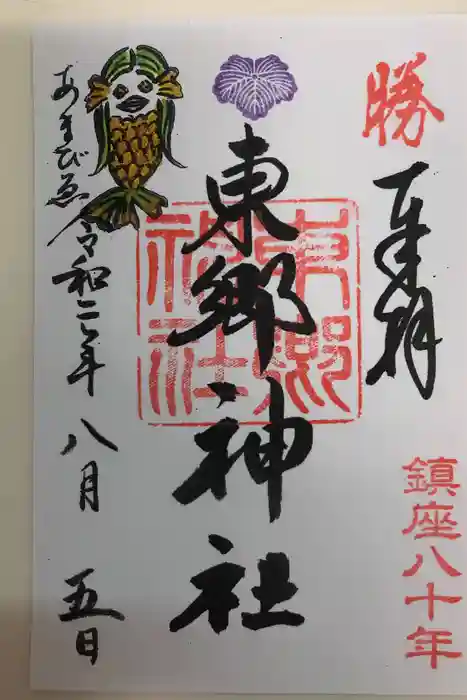 勝
奉拝
鎮座八十年
東郷神社
東郷神社
あまびゑ
令和二年八月五日